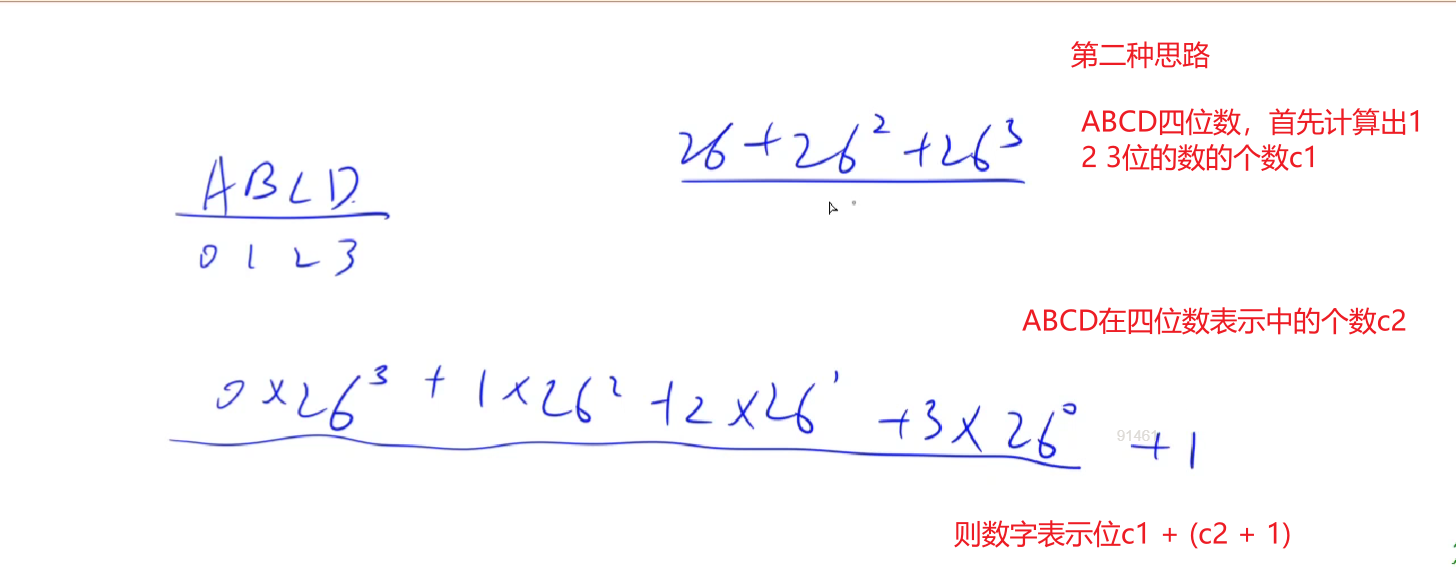 第二种思路
26+26²+26³
ABCD四位数，首先计算出1
2 3位的数的个数c1
ABCD
0 1 2 3
ABCD在四位数表示中的个数c2
0×26³ + 1×26² +2×26¹ +3×26⁰ +1
91461
则数字表示位c1 + (c2 + 1)